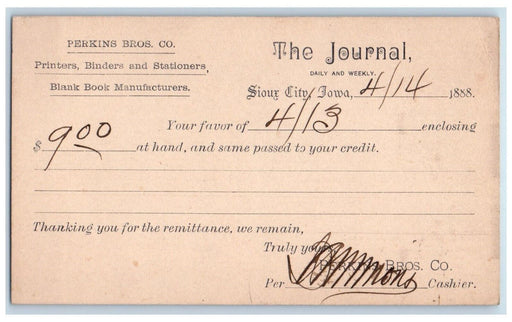 PERKINS BROS. CO.
Printers, Binders and Stationers,
Blank Book Manufacturers.
The Journal,
DAILY AND WEEKLY.
Sioux City, Iowa, 4/14 1888.
Your favor of 4/13 enclosing
$9.00 at hand, and same passed to your credit.
Thanking you for the remittance, we remain,
Truly yours,
PERKINS BROS. CO.
Per Cashier.